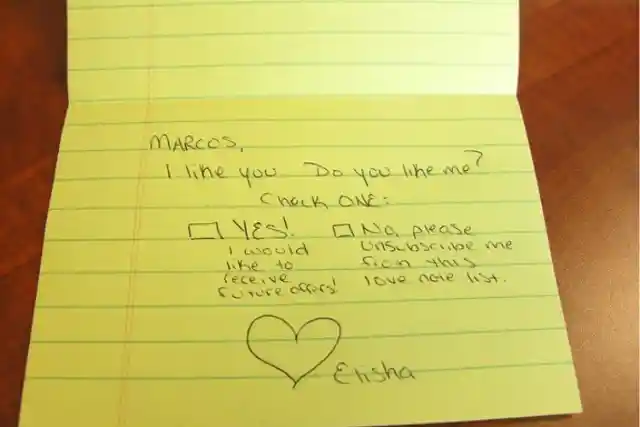 MARCOS,
I like you Do you like me?
Check ONE:
☐ YES! ☐ No, please
I would unsubscribe me
like to from this
receive love note list.
future offers!
Elisha